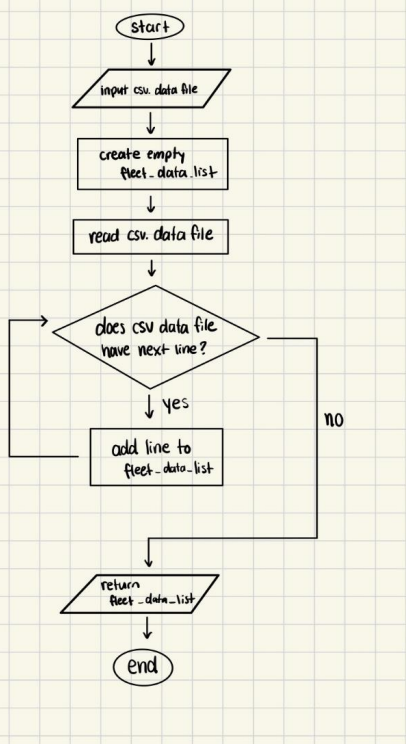 start
input csv. data file
create empty
fleet_data_list
read csv. data file
does csv data file
have next line?
yes
no
add line to
fleet_data_list
return
fleet_data_list
end